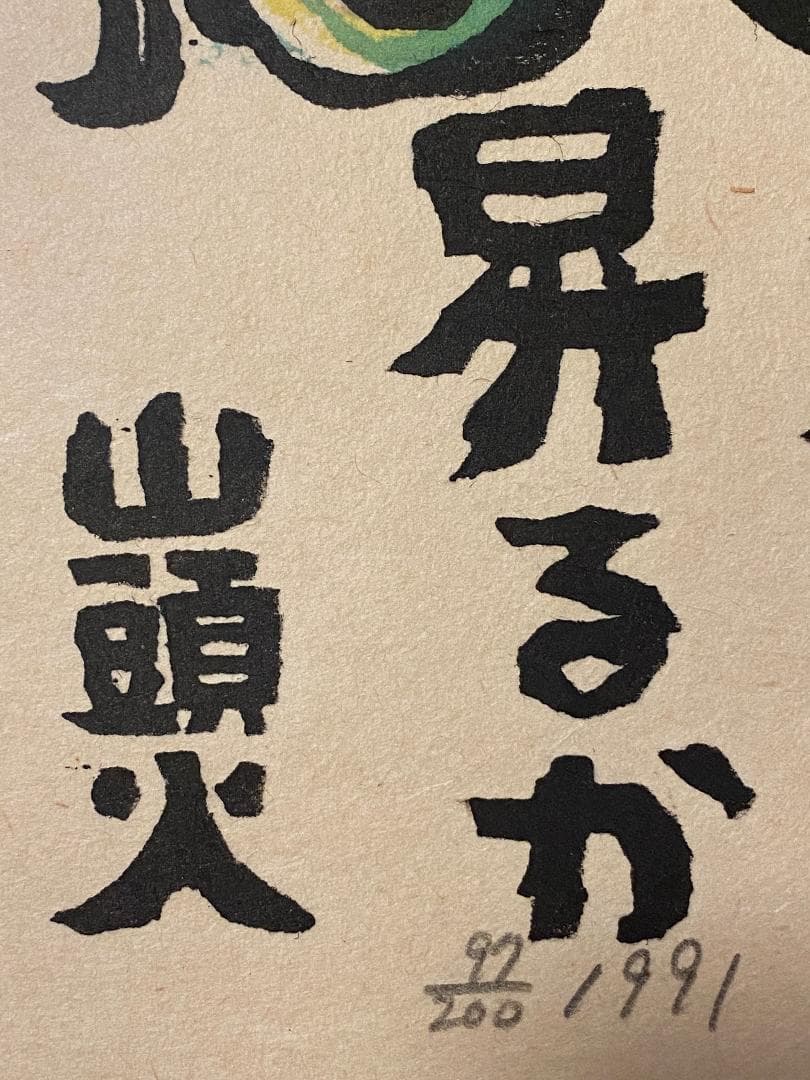 昇るか
山頭火
97/200 1991